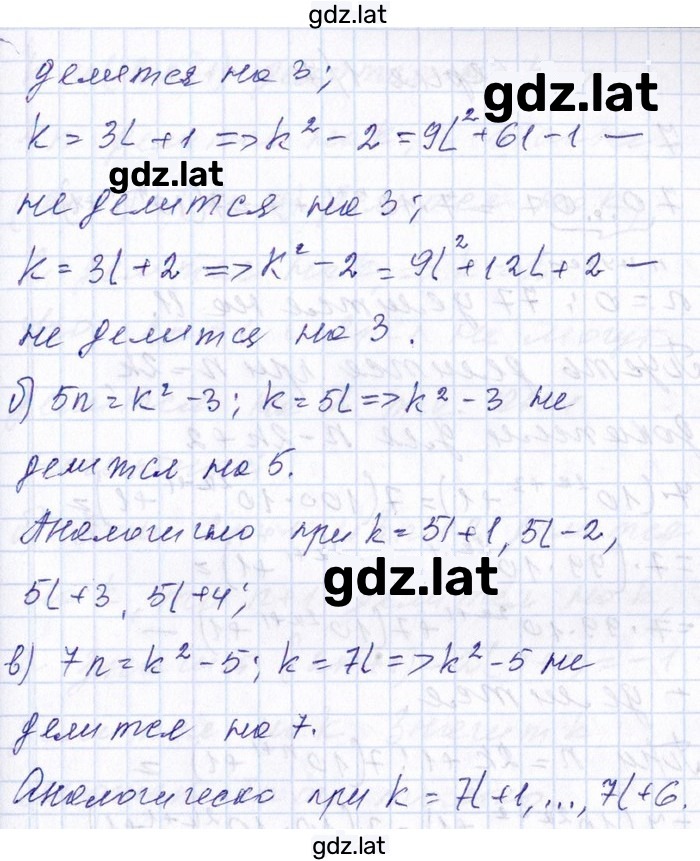 gdz.lat
делится на 3;
gdz.lat
k = 3l + 1 => k² - 2 = 9l² + 6l - 1 —
gdz.lat
не делится на 3;
k = 3l + 2 => k² - 2 = 9l² + 12l + 2 —
не делится на 3.
б) 5n = k² - 3; k = 5l => k² - 3 не
делится на 5.
Аналогично при k = 5l + 1, 5l - 2,
gdz.lat
5l + 3, 5l + 4;
в) 7n = k² - 5; k = 7l => k² - 5 не
делится на 7.
Аналогическо при k = 7l + 1, ..., 7l + 6.
gdz.lat